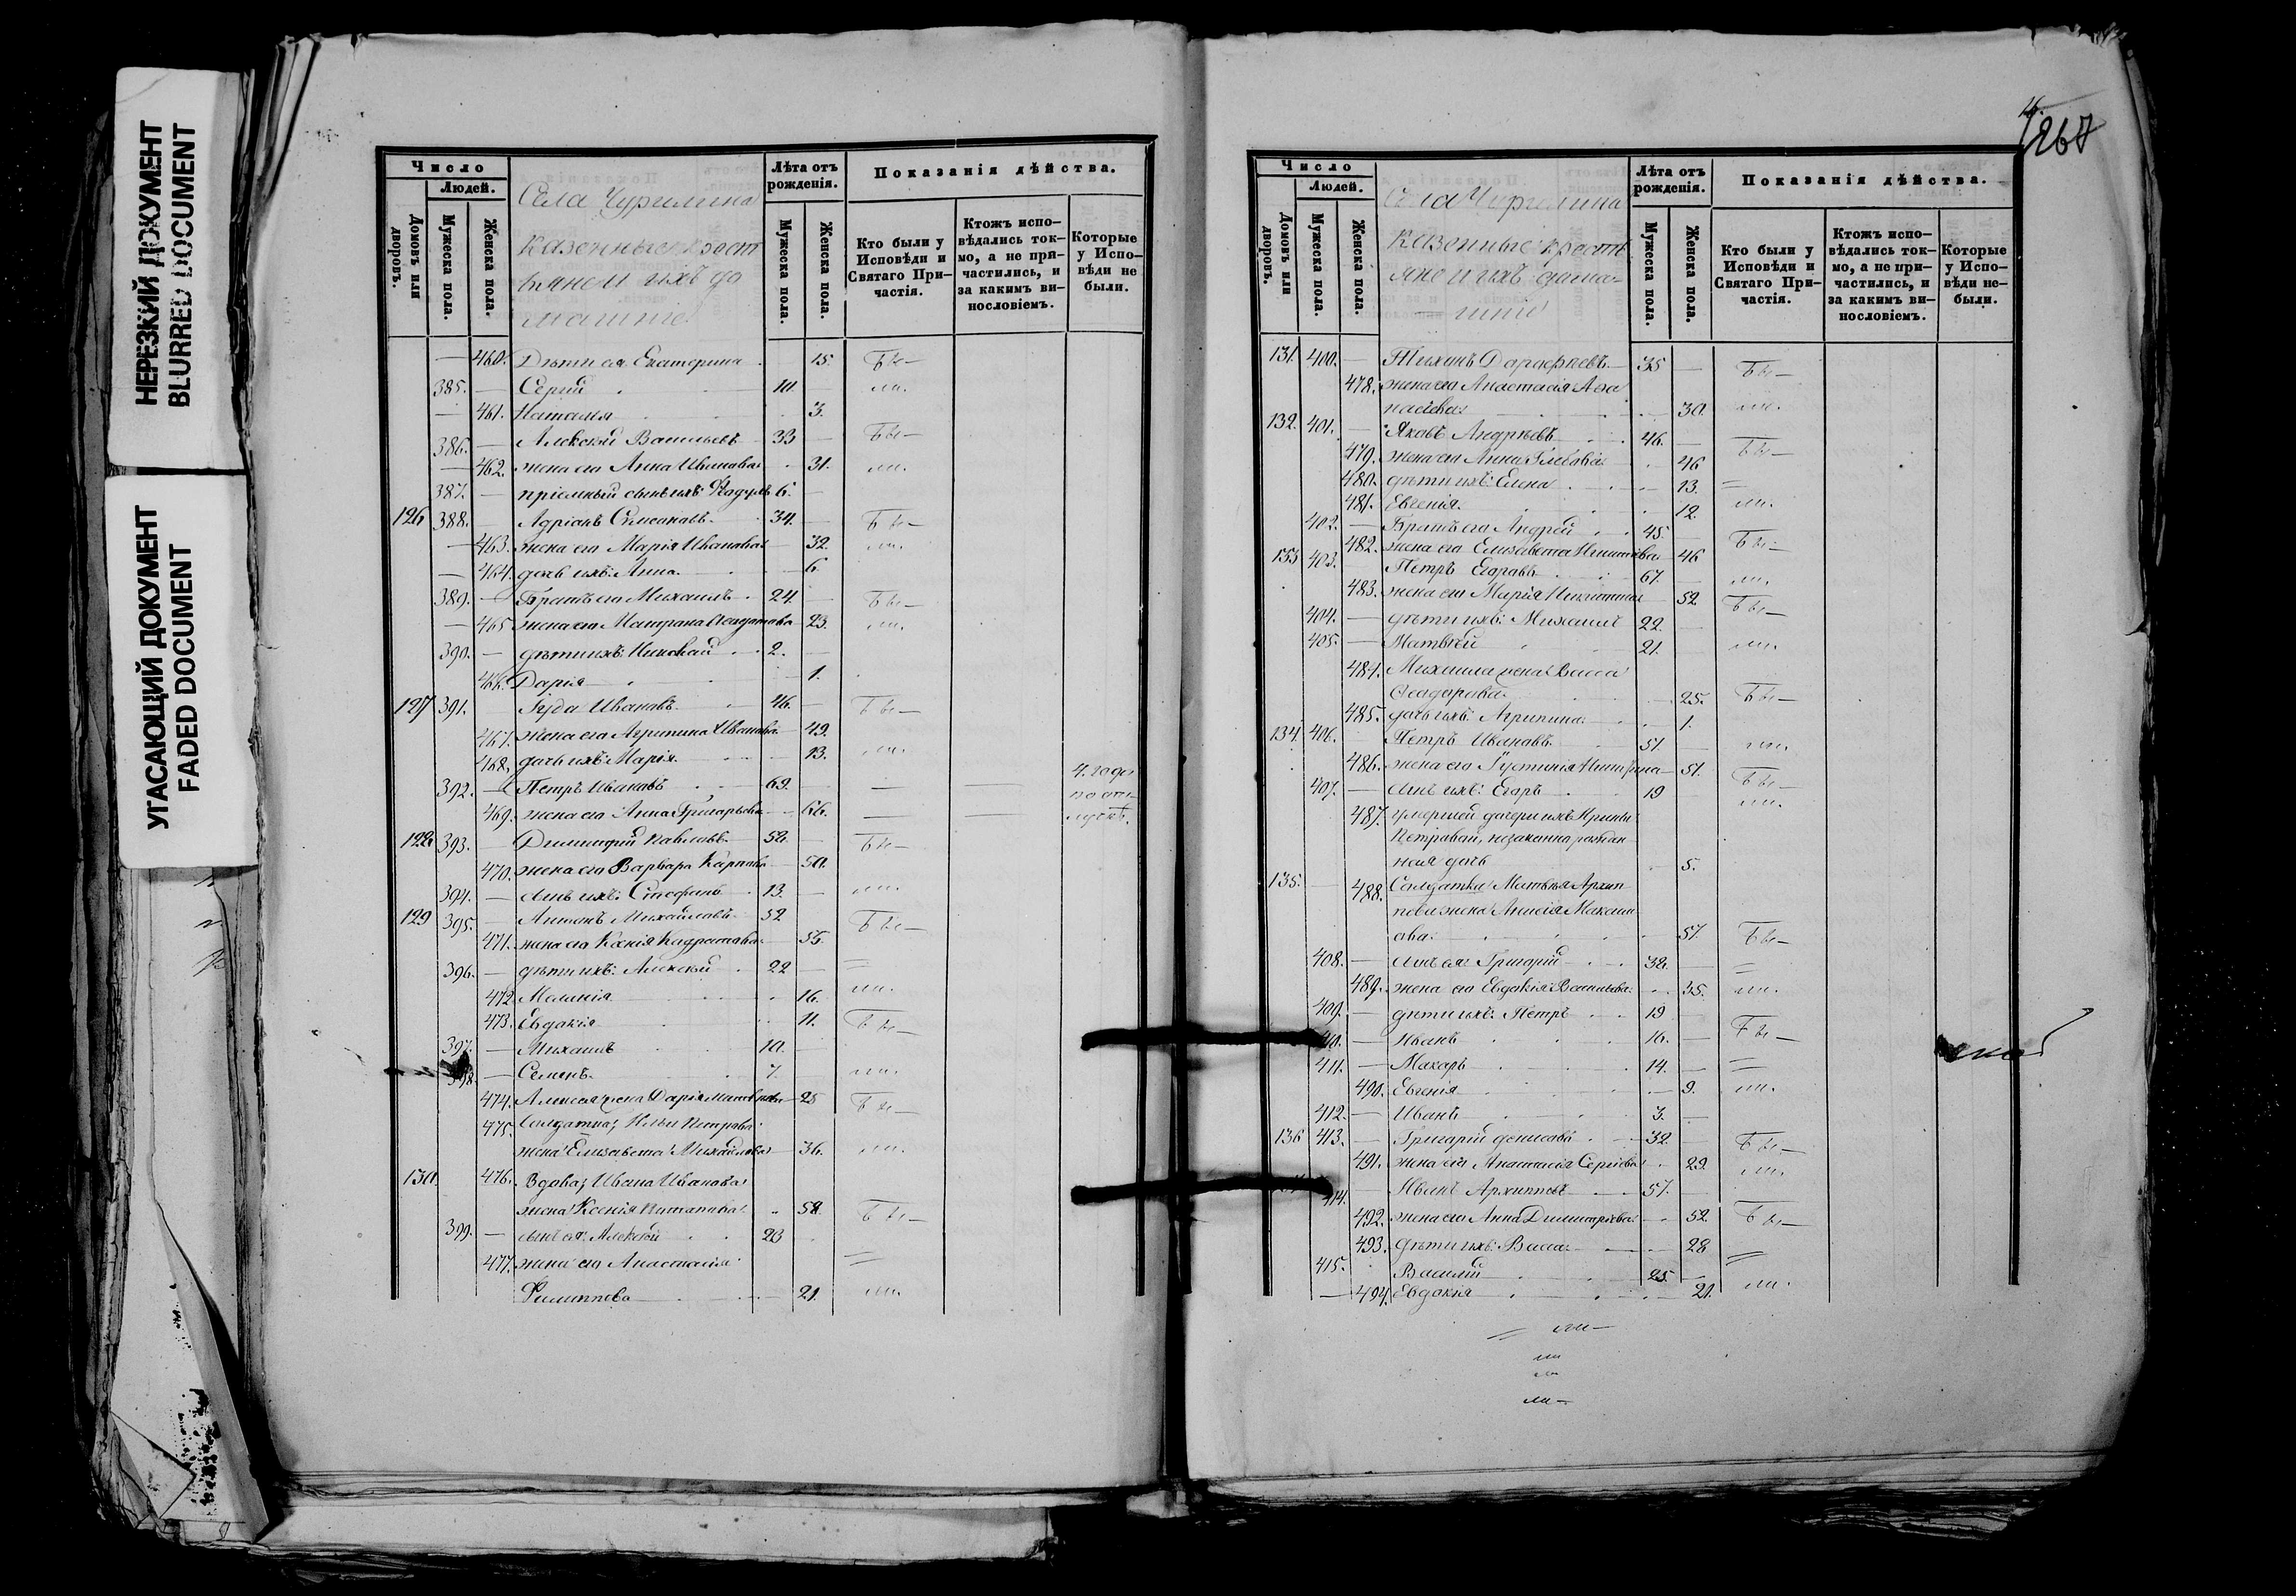 НЕРЕЗКИЙ ДОКУМЕНТ
BLURRED DOCUMENT
УГАСАЮЩИЙ ДОКУМЕНТ
FADED DOCUMENT
Число
Людей.
Домовъ или дворовъ.
Мужеска пола.
Женска пола.
Села Чурилина
казенные крест
ьяне и ихъ до
машніе
Лѣта отъ рожденія.
Мужеска пола.
Женска пола.
Показанія дѣйства.
Кто были у Исповѣди и Святаго При-частія.
Ктожъ испо-вѣдались ток-мо, а не при-частились, и за какимъ ви-нословіемъ.
Которые у Испо-вѣди не были.
460. Дѣти ея Екатерина 15. Бы—
385. — Сергій 10 ли.
— 461. Наталья 3.
386. — Алексѣй Васильевъ 33 — Бы—
— 462. жена его Анна Иванова 31. ли.
387. — пріемный сынъ ихъ 6. —
126 388. — Адріанъ 34. — Бы—
— 463. жена его Марія Иванова 32. ли.
— 464. дочь ихъ: Анна 6
389. — Братъ его Михаилъ 24. — Бы—
— 465 жена его Матрона 23. ли.
390. — дѣти ихъ: Николай 2. —
466. Дарія 1.
127 391. Іуда Ивановъ 46. — Бы—
467. жена его Агрипина Иванова 49.
468. дочь ихъ: Марія 13. ли.
392. — Петръ Ивановъ 69. — — — 4. года
469. жена его Анна Григорьева 66. — — по отлучкѣ.
128 393. Димитрій Павловъ 52. — Бы—
470. жена его Варвара Карпова 50.
394. — сынъ ихъ: Стефанъ 13. — ли.
129 395. — Антонъ Михайловъ 52 Бы—
471. жена его Ксенія 55.
396. — дѣти ихъ: Алексѣй 22 —
472 Меланія 16. ли.
473. Евдокія 11. Бы—
397. — Михаилъ 10. —
398. — Семенъ 7. ли.
474. Алексѣя жена Дарія 25 Бы—
475. Солдатка, Ильи Петрова
жена Елисавета Михайлова 36. ли.
130. 476. Вдова, Ивана Иванова
жена Ксенія 58. Бы—
399. — сынъ ея: Алексѣй 23
477. жена его Анастасія
Филиппова 21. ли.
267
Число
Людей.
Домовъ или дворовъ.
Мужеска пола.
Женска пола.
Села Чурилина
казенные кресть
яне и ихъ дома-
шніе
Лѣта отъ рожденія.
Мужеска пола.
Женска пола.
Показанія дѣйства.
Кто были у Исповѣди и Святаго При-частія.
Ктожъ испо-вѣдались ток-мо, а не при-частились, и за какимъ ви-нословіемъ.
Которые у Испо-вѣди не-были.
131. 400. — Тихонъ Дорофеевъ 35 — Бы—
478. жена его Анастасія Афа
насіева 30. ли.
132. 401. — Яковъ Андреевъ 46. —
479. жена его Анна Глебова 46 Бы—
480. дѣти ихъ: Елена 13.
481. Евгенія 12. ли.
402. — Братъ его Андрей 45. —
482. жена его Елисавета 46 Бы—
133 403. Петръ Егоровъ 67. — ли.
483. жена его Марія Никитина 52 Бы—
404. — дѣти ихъ: Михаилъ 22. —
405. — Матвѣй 21. ли.
484. Михаила жена Васса
25. Бы—
485. дочь ихъ: Агрипина 1.
134. 406. Петръ Ивановъ 51. — ли.
486. жена его Густинія 51. Бы—
407. — сынъ ихъ: Егоръ 19 ли.
487. умершей дочери ихъ Ирины
Петровой, незаконно рожден
ная дочь 5.
135. — 488. Солдатки Матвѣя Архип
пова жена Анисія Макси
ова 57. Бы—
408. — сынъ ея: Григорій 38. —
489. жена его Евдокія Васильева 35. ли.
409. — дѣти ихъ: Петръ 19 —
410. — Иванъ 16. — Бы—
411. — Макаръ 14. —
490. Евгенія 9. ли.
412. — Иванъ 3. —
136 413. — Григорій Денисовъ 32. — Бы—
491. жена его Анастасія Сергіева 29. ли.
414. — Иванъ Архиповъ 57. —
492. жена его Анна Димитріева 52. Бы—
493. дѣти ихъ: Васса 28
415. Василій 25. —
— 494. Евдокія 21. ли.